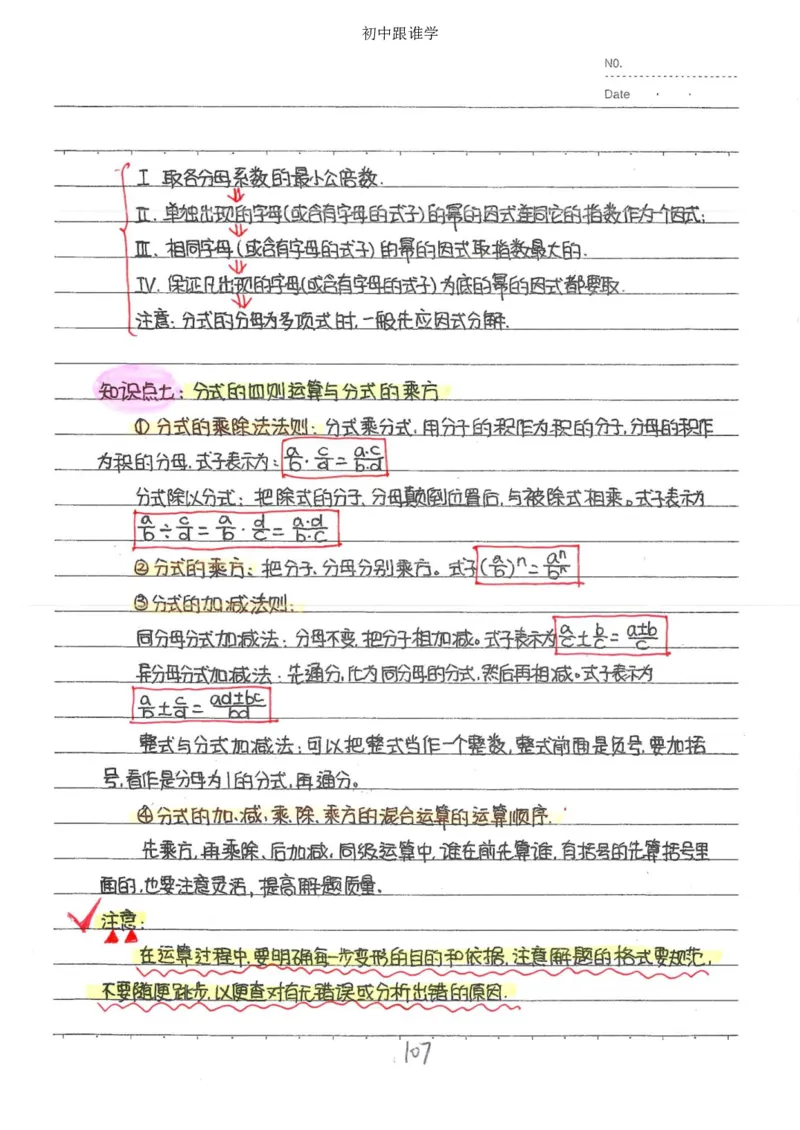 初中跟谁学
NO.
Date · ·
Ⅰ 取各分母系数的最小公倍数.
Ⅱ. 单独出现的字母(或含有字母的式子)的幂的因式连同它的指数作为一个因式;
Ⅲ. 相同字母(或含有字母的式子)的幂的因式取指数最大的.
Ⅳ. 保证凡出现的字母(或含有字母的式子)为底的幂的因式都要取.
注意: 分式的分母为多项式时,一般先应因式分解.
知识点七: 分式的四则运算与分式的乘方
① 分式的乘除法法则: 分式乘分式,用分子的积作为积的分子,分母的积作
为积的分母.式子表示为: a/b · c/d = a·c/b·d
分式除以分式: 把除式的分子、分母颠倒位置后,与被除式相乘。式子表示为
a/b ÷ c/d = a/b · d/c = a·d/b·c
② 分式的乘方: 把分子、分母分别乘方。式子 (a/b)ⁿ = aⁿ/bⁿ
③ 分式的加减法则:
同分母分式加减法: 分母不变,把分子相加减。式子表示为 a/c ± b/c = a±b/c
异分母分式加减法: 先通分,化为同分母的分式,然后再相减。式子表示为
a/b ± c/d = ad±bc/bd
整式与分式加减法: 可以把整式当作一个整数,整式前面是负号,要加括
号,看作是分母为1的分式,再通分。
④ 分式的加、减、乘、除、乘方的混合运算的运算顺序.
先乘方,再乘除、后加减,同级运算中,谁在前先算谁,有括号的先算括号里
面的,也要注意灵活,提高解题质量.
注意:
在运算过程中,要明确每一步变形的目的和依据,注意解题的格式要规范,
不要随便跳步,以便查对有无错误或分析出错的原因.
107